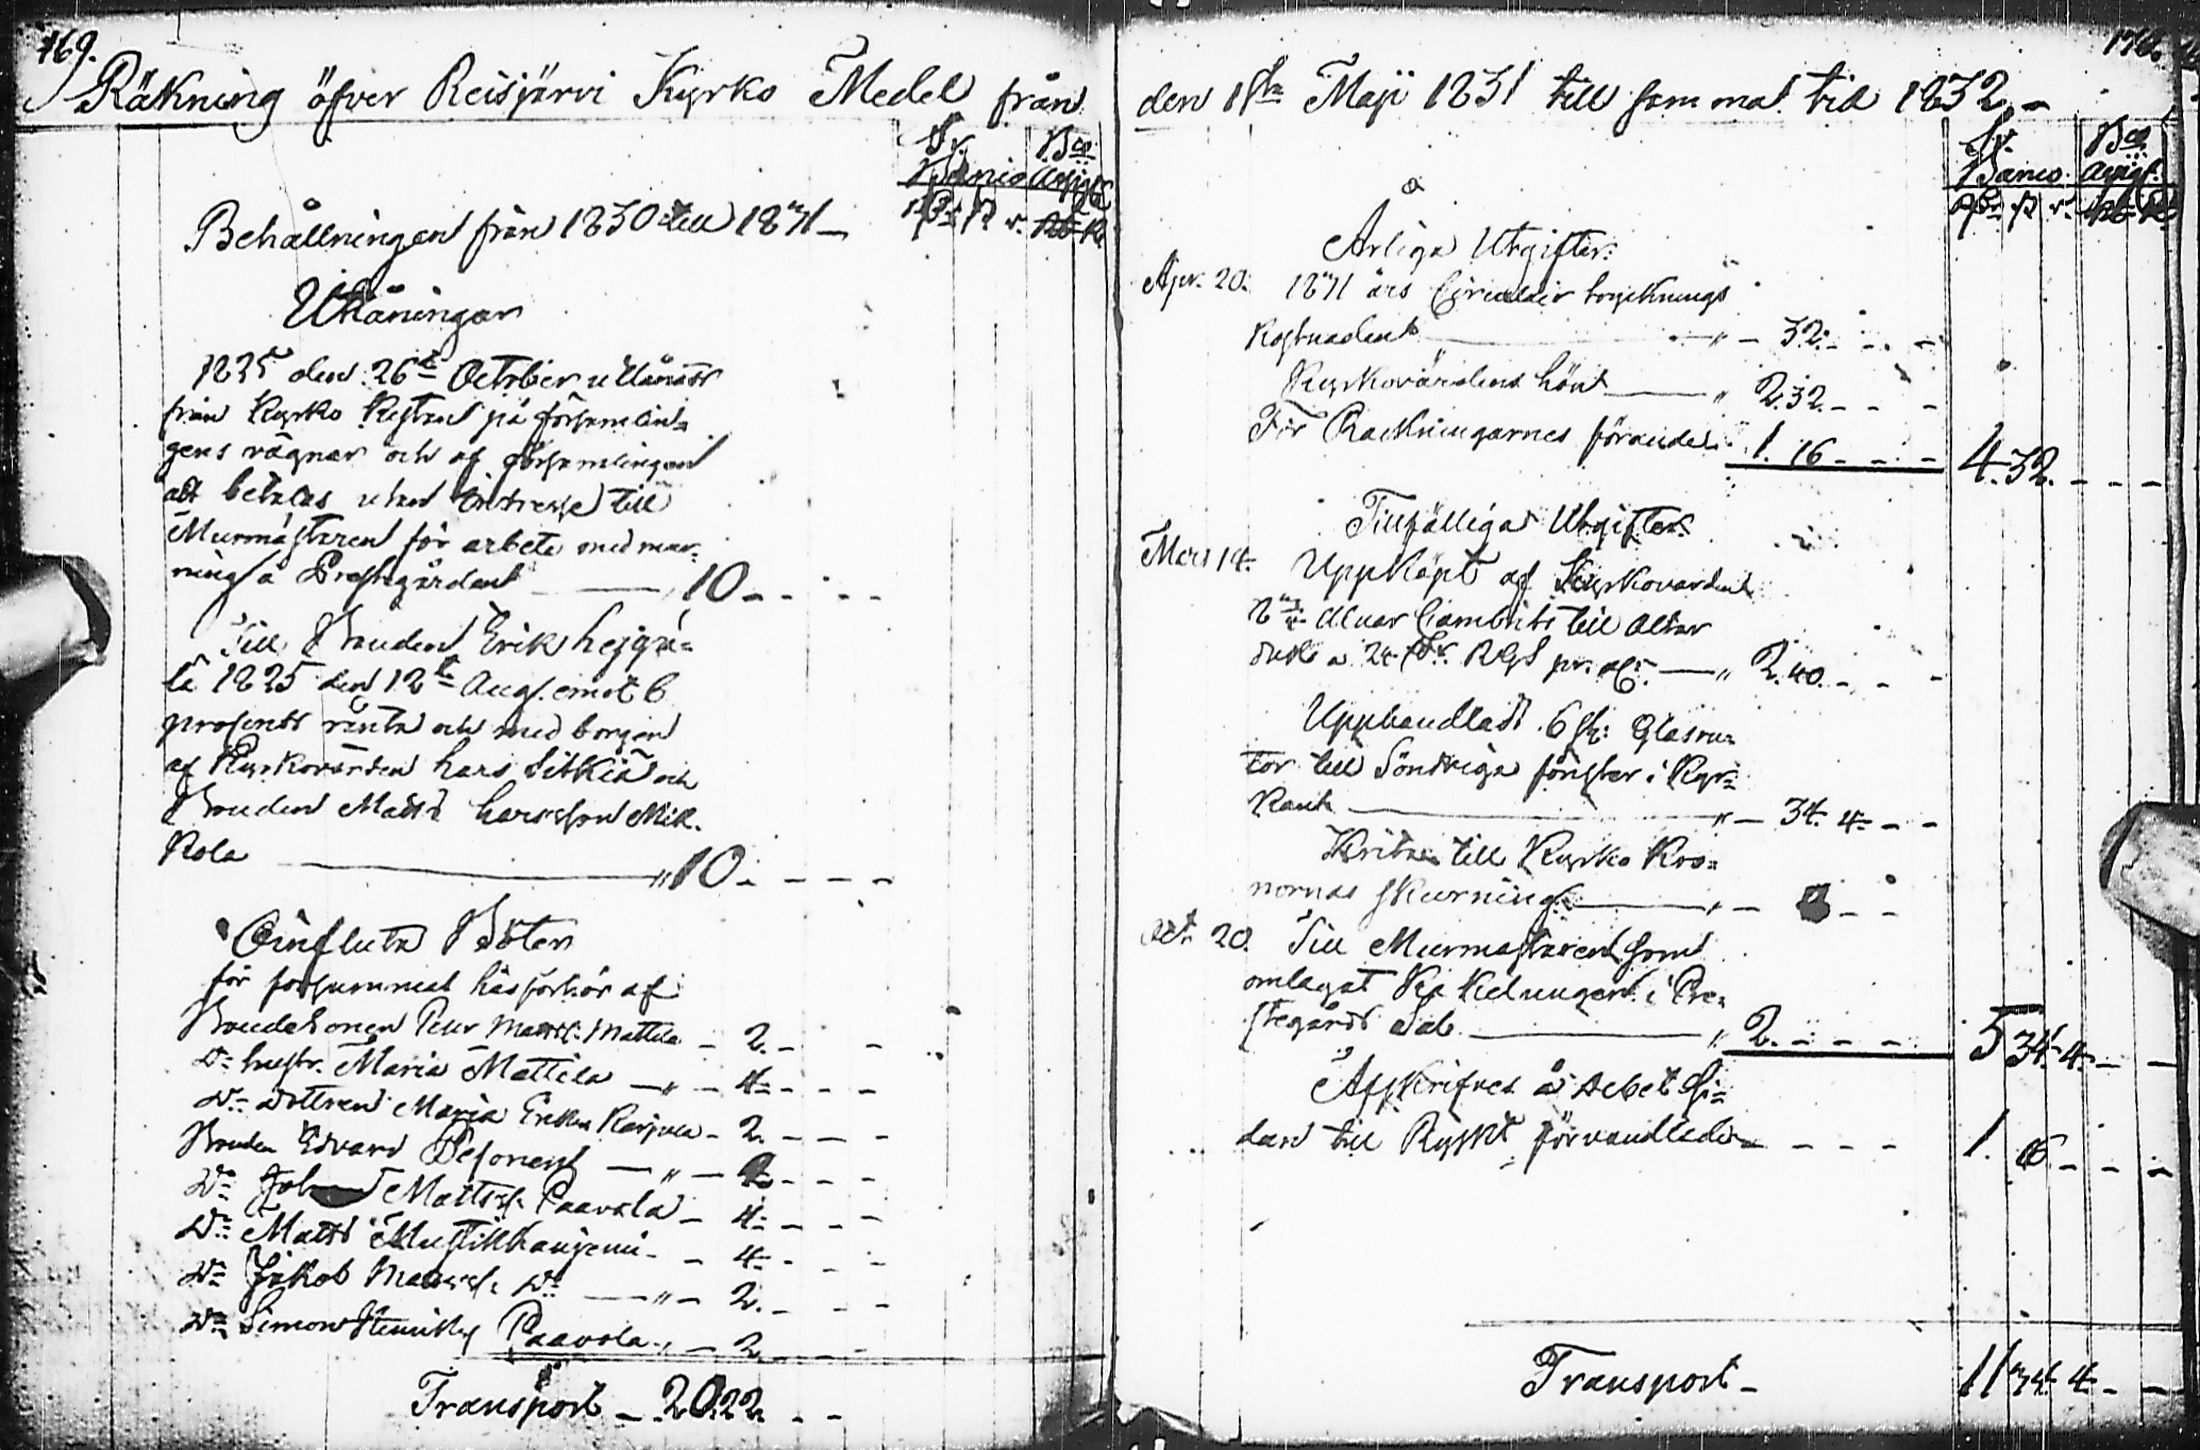 169.
Räkning öfver Reisjärvi Kyrko Medel från
Sv. Banco Bco Assigt
Behållningen från 1830 till 1831 —
Utlåningar
1825 den 26te October utlånt
från Kyrko Kistan på församlin-
gens vägnar och af församlingen
att betalas utan Intresse till
Murmästaren för arbete med mur-
ning å Prestgården — 10 - - - -
Till Bonden Erik Lejpä-
lä 1825 den 12te Aug. emot 6
procents ränta och med borgen
af Kyrkovärden Lars Sitkiä och
Bonden Matts Larsson Mik-
kola — " 10 - - - -
Influtna Böter
för försummat läsförhör af
Bondesonen Petter Mattss. Mattila - 2. - -
Do hustr. Maria Mattila — " - 4 - - -
Do dottren Maria Ersdr Karjula - 2. - - -
Bonden Edvard Pesonen — " - 2 - - -
Do Joh Mattss. Paavola - 4 - - -
Do Matts Mustikkaniemi - - 4 - - -
Do Jakob Mattss. Do — " - 2. - - -
Do Simon Paavola " - 2 - - -
Transport - 20.22. - -
170.
den 1sta Maji 1831 till samma tid 1832. -
Sv. Banco. Bco Assigt.
Årliga Utgifter.
Apr. 20. 1831 års Circulair trycknings
Kostnaden — " - 32. - - -
Kyrkovärdens Lön — " 2.32. - - -
För Räkningarnes förande 1. 16 - - - 4.32. - - -
Tillfälliga Utgifter.
Mars 14. Uppköpt af Kyrkovärden
alnar Cambrits till Altar
duk a 24 pr. al: — " 2.40. - - -
Upphandladt 6 st: Glasru-
tor till Söndriga fönster i Kyr-
kan — " - 34. 4 - -
Krita till Kyrko Kro-
nornas skurning — " - 8 - -
Oct. 20. Till Murmästaren som
omlagat Kakelungen i Pre-
stegårds Sal — " 2. - - - 5 34. 4. - -
Afskrifves å Debet Si-
dan till Ryskt förvandlade - - - - 1. 16. - - -
Transport - 11 34. 4. - -